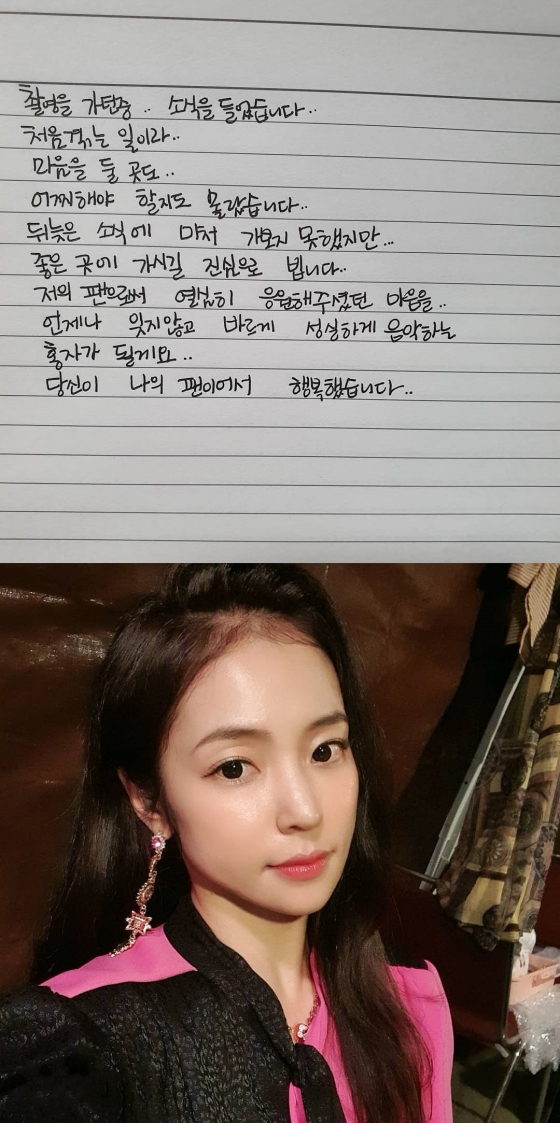 촬영을 가던중.. 소식을 들었습니다..
처음겪는 일이라..
마음을 둘 곳도..
어찌해야 할지도 몰랐습니다..
뒤늦은 소식에 마저 가보지 못했지만...
좋은 곳에 가시길 진심으로 빕니다..
저의 팬으로써 열심히 응원해주셨던 마음을..
언제나 잊지않고 바르게 성실하게 음악하는
홍자가 될게요..
당신이 나의 팬이어서 행복했습니다..